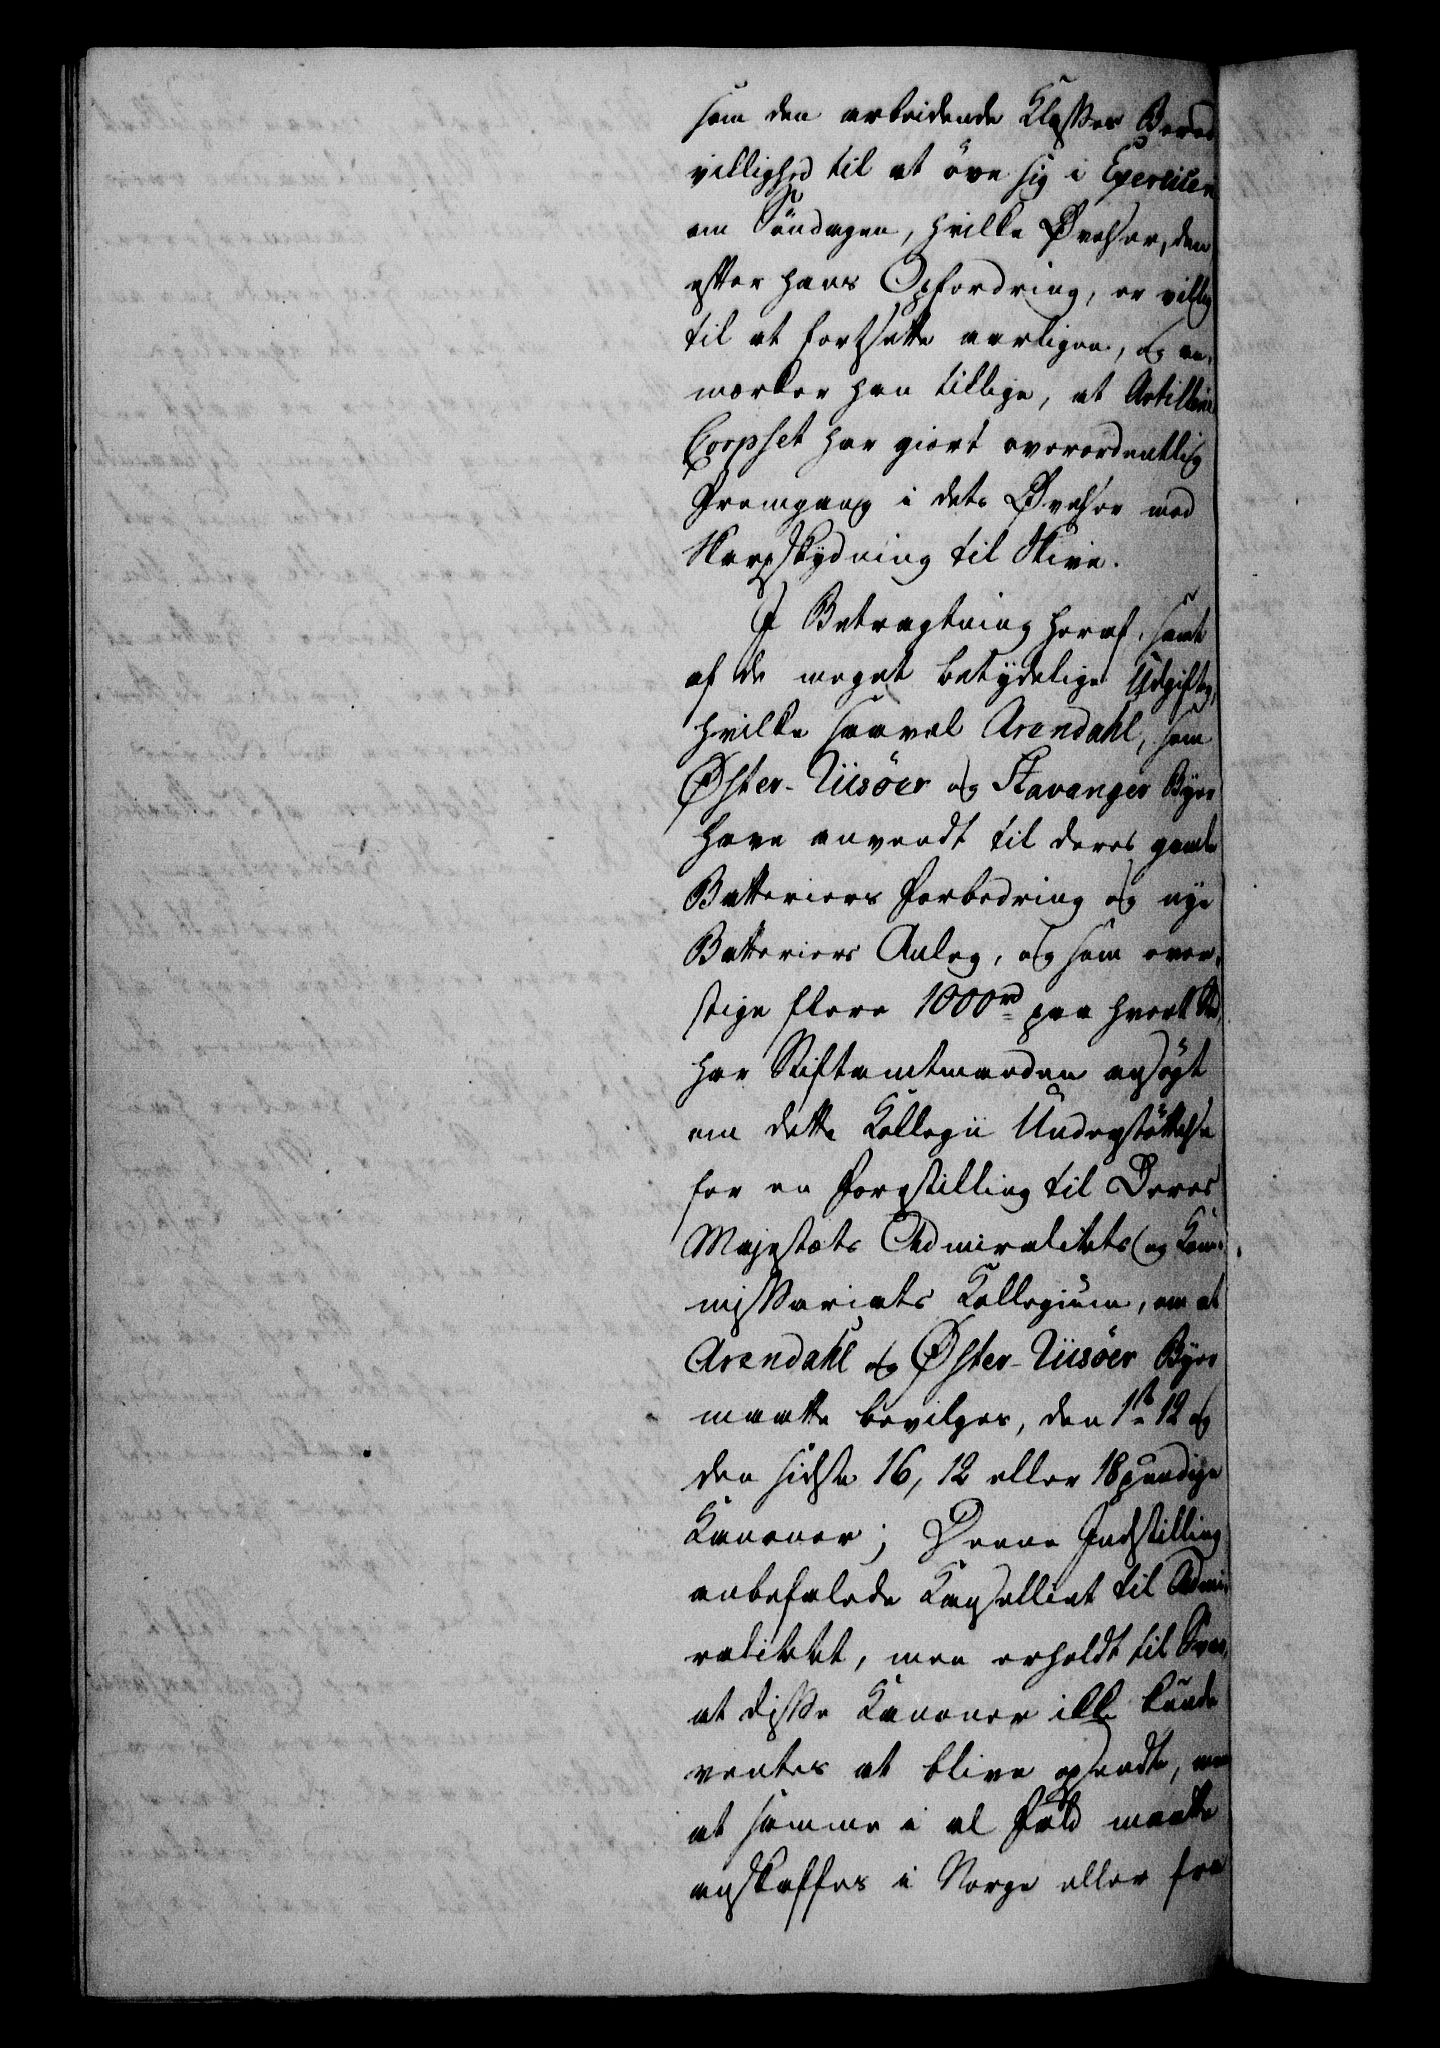 som den arbeidende Klasses Bered
villighed til at öve sig i Exercicen
om Söndagen, hvilke Øvelser, den
efter hans Opfordring, er villig
til at fortsætte aarligen, og an-
mærker han tillige, at Artillerie
Corpset har giort overordentlig
Fremgang i dets Øvelser med
Skarpskydning til Skive.
I Betragtning heraf, samt
af de meget betydelige Udgifter,
hvilke saavel Arendahl, som
Øster-Riisöer og Stavanger Byer
have anvendt til deres gamle
Batteriers Forbedring og nye
Batteriers Anlæg, og som over-
stige flere 1000rd paa hvert Sted,
har Stiftamtmanden ansögt
om dette Kollegii Understöttelse
for en Forestilling til Deres
Majestæts Admiralitets og Kom-
missariats Kollegium, om at
Arendahl og Øster-Riisöer Byer
maatte bevilges, den 1ste 12 og
den sidste 16, 12 eller 18pundige
Kanoner; Denne Indstilling
anbefalede Kancelliet til Admi-
ralitetet, men erholdt til Svar,
at disse Kanoner ikke kunde
ventes at blive opsendte, men
at samme i al Fald maatte
anskaffes i Norge eller fra